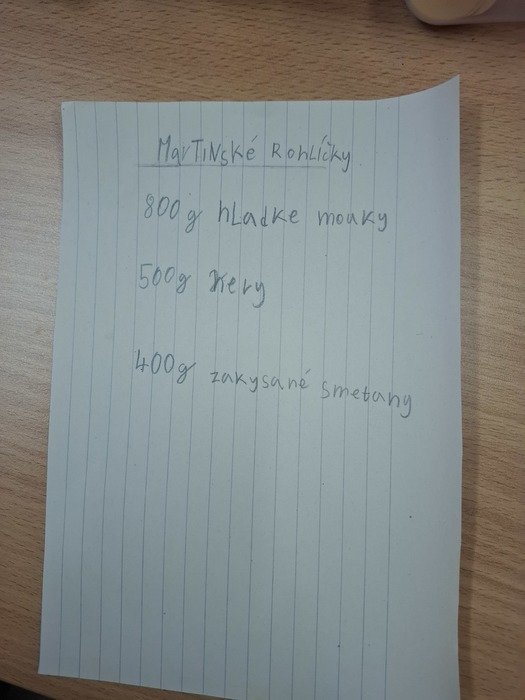 Martinské Rohlíčky
800g hladke mouky
500g Hery
400g zakysané smetany